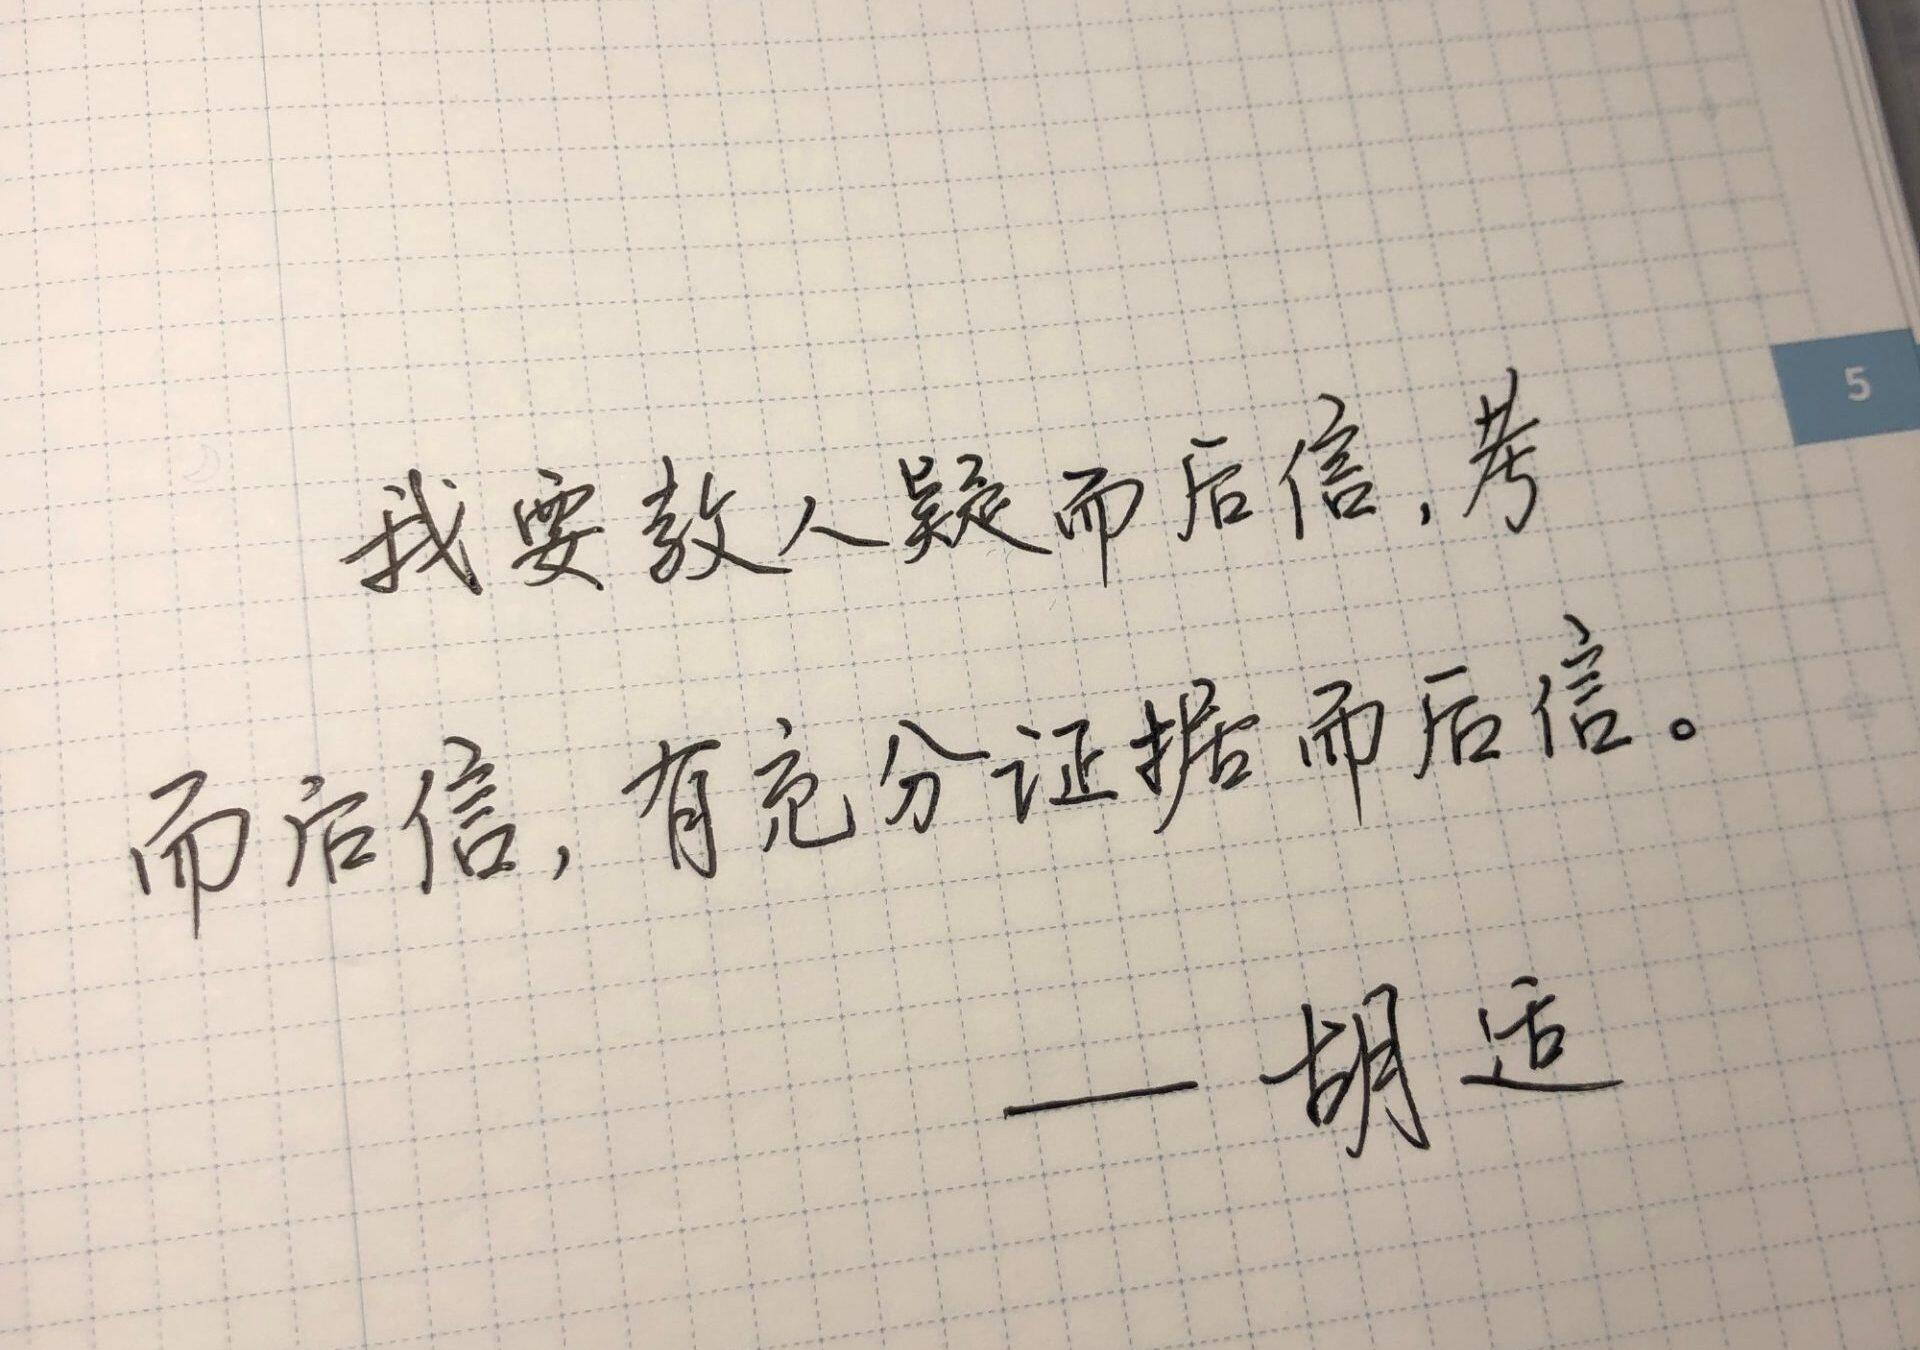 5
我要教人疑而后信,考
而后信,有充分证据而后信。
—胡适